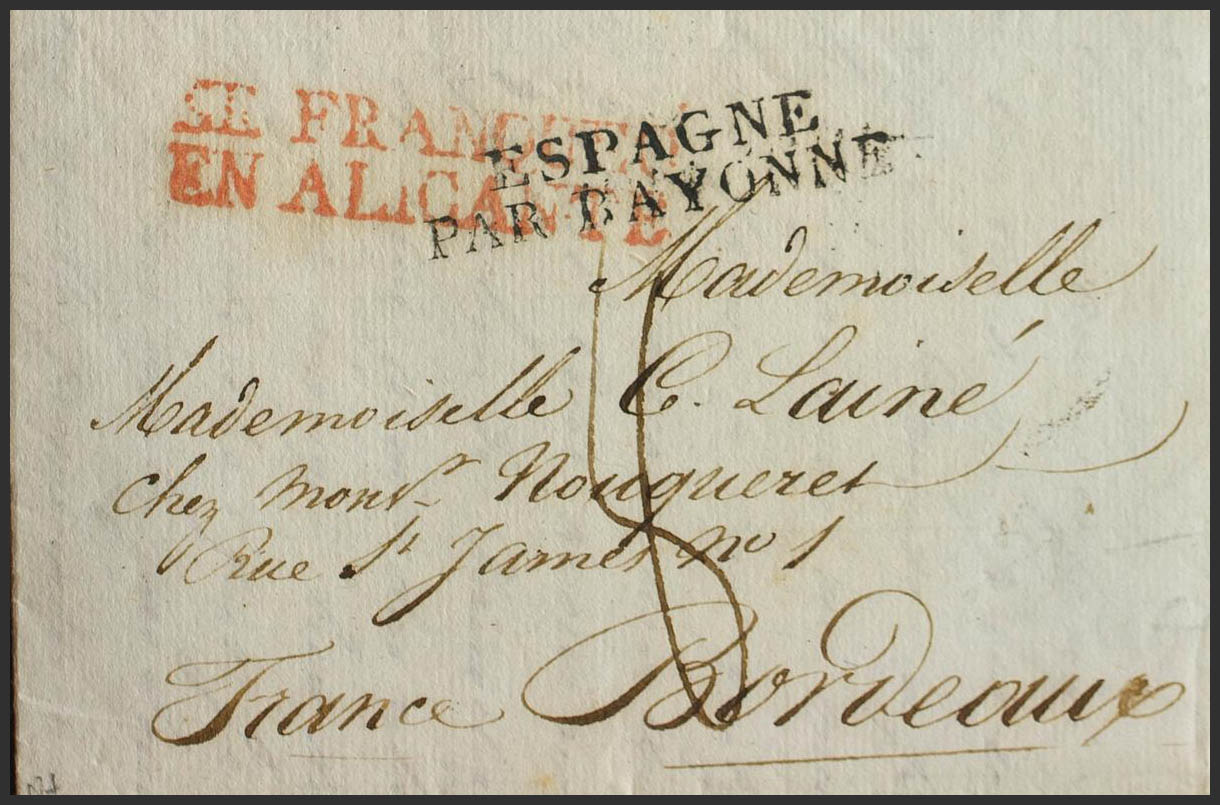 SE FRANQUEÓ
EN ALICANTE
ESPAGNE
PAR BAYONNE
Mademoiselle
Mademoiselle C. Lainé
chez Monsr Nouqueret
Rue St James no 1
France Bordeaux